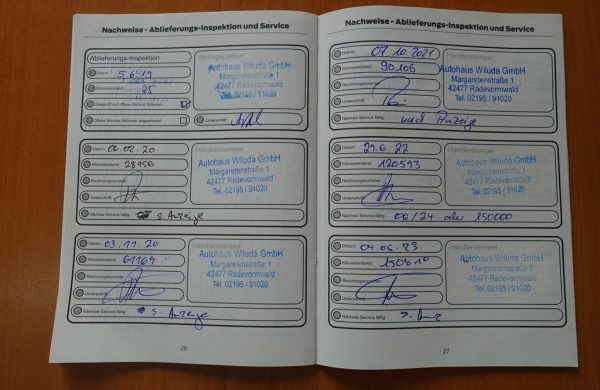 Nachweise - Ablieferungs-Inspektion und Service
Ablieferungs-Inspektion
Datum: 5.6.19
Kilometerstand: 25
Überprüft auf offene Service Aktionen
Offene Service Aktionen abgearbeitet
Vertragspartner
Autohaus Wiluda GmbH
Margaretenstraße 1
42477 Radevormwald
Tel. 02195 / 91020
Unterschrift
Datum: 06.02.20
Kilometerstand: 28456
Rechnungsnummer:
Unterschrift:
Nächste Service fällig: s. Anzeige
Händlerstempel
Autohaus Wiluda GmbH
Margaretenstraße 1
42477 Radevormwald
Tel. 02195 / 91020
Datum: 03.11.20
Kilometerstand: 61164
Rechnungsnummer:
Unterschrift:
Nächste Service fällig: s. Anzeige
Händlerstempel
Autohaus Wiluda GmbH
Margaretenstraße 1
42477 Radevormwald
Tel. 02195 / 91020
26
Nachweise - Ablieferungs-Inspektion und Service
Datum: 07.10.2021
Kilometerstand: 90106
Rechnungsnummer:
Unterschrift:
Nächste Service fällig: nach Anzeige
Händlerstempel
Autohaus Wiluda GmbH
Margaretenstraße 1
42477 Radevormwald
Tel. 02195 / 91020
Datum: 29.6.22
Kilometerstand: 120593
Rechnungsnummer:
Unterschrift:
Nächste Service fällig: 06/24 oder 150000
Händlerstempel
Autohaus Wiluda GmbH
Margaretenstraße 1
42477 Radevormwald
Tel. 02195 / 91020
Datum: 04.05.23
Kilometerstand: 150810
Rechnungsnummer:
Unterschrift:
Nächste Service fällig:
Händlerstempel
Autohaus Wiluda GmbH
Margaretenstraße 1
42477 Radevormwald
Tel. 02195 / 91020
27